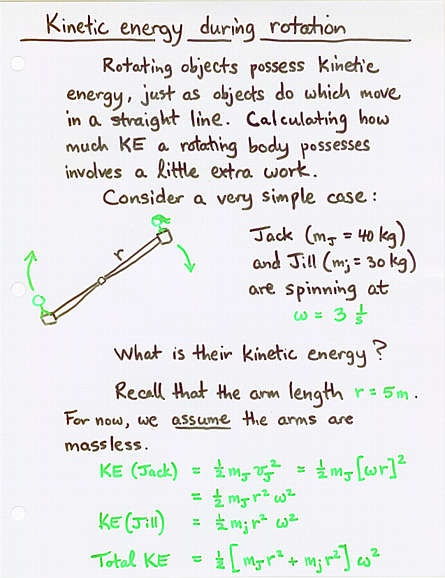 Kinetic energy during rotation
Rotating objects possess Kinetic
energy, just as objects do which move
in a straight line. Calculating how
much KE a rotating body possesses
involves a little extra work.
Consider a very simple case:
r
Jack (m_J = 40 kg)
and Jill (m_j = 30 kg)
are spinning at
ω = 3 1/s
What is their kinetic energy?
Recall that the arm length r = 5m.
For now, we assume the arms are
massless.
KE (Jack) = ½ m_J v_J² = ½ m_J [ωr]²
= ½ m_J r² ω²
KE (Jill) = ½ m_j r² ω²
Total KE = ½ [m_J r² + m_j r²] ω²